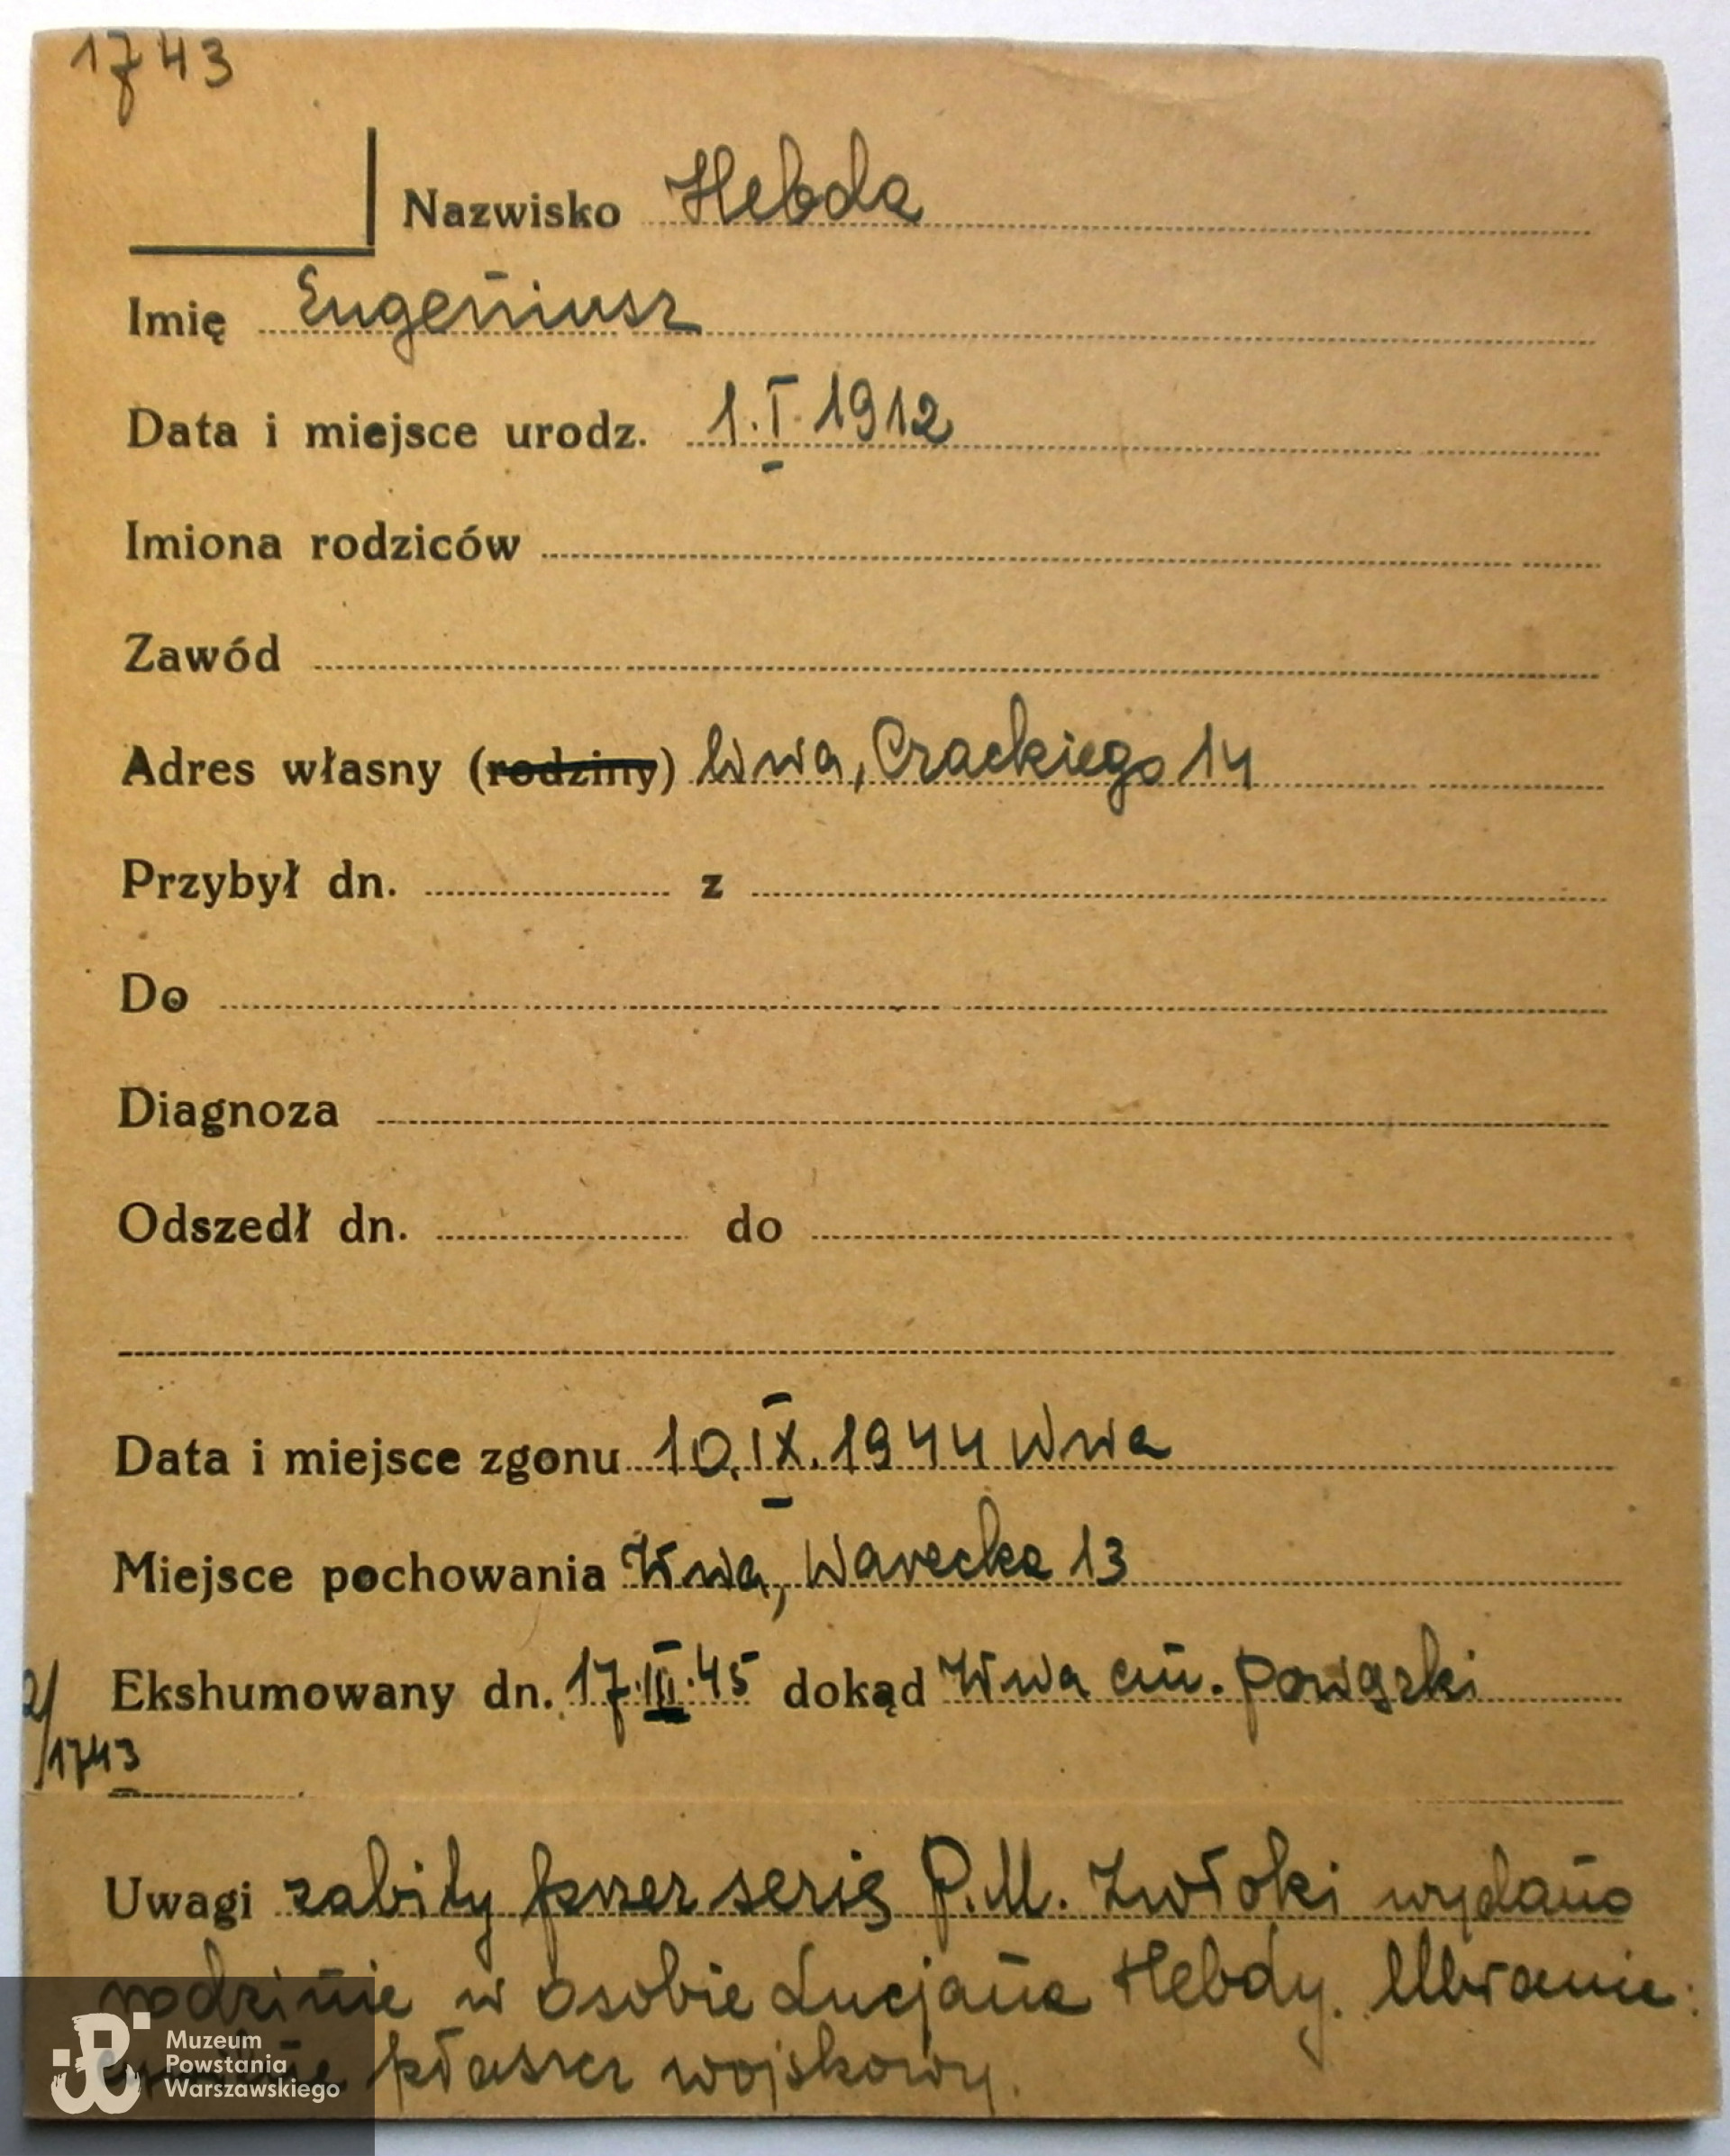 1743
Nazwisko Hebda
Imię Eugeniusz
Data i miejsce urodz. 1.I.1912
Imiona rodziców
Zawód
Adres własny (rodziny) Wwa, Czackiego 14
Przybył dn. z
Do
Diagnoza
Odszedł dn. do
Data i miejsce zgonu 10.IX.1944 Wwa
Miejsce pochowania Wwa, Warecka 13
Ekshumowany dn. 17.III.45 dokąd Wwa cm. Powązki
2/1743
Uwagi zabity przez serię P.M. Zwłoki wydano
rodzinie w osobie Lucjana Hebdy. Ubranie:
płaszcz wojskowy.
Muzeum
Powstania
Warszawskiego